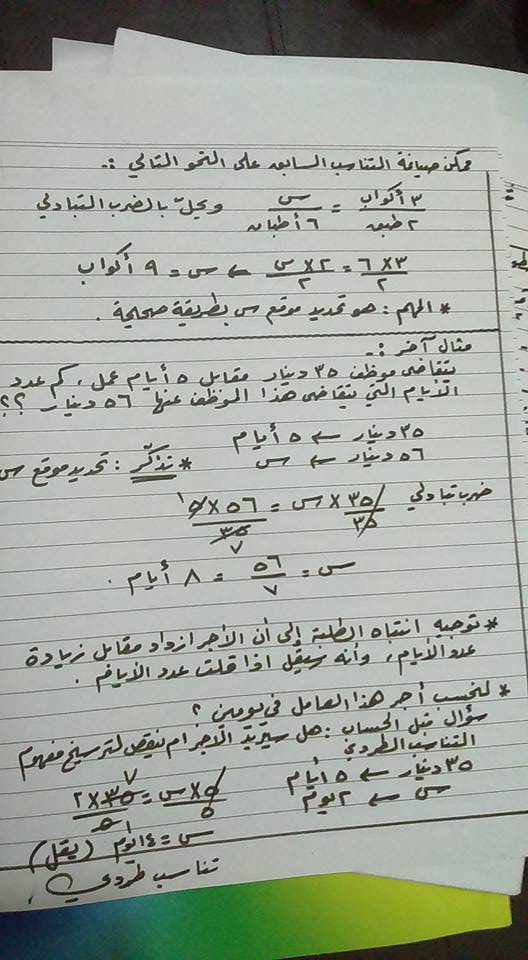 ممكن صياغة التناسب السابق على النحو التالي :-
٣ أكواب / ٢ طبق = س / ٦ أطباق ويحلّ بالضرب التبادلي
٦ × ٣ / ٢ = ٢ × س / ٢ ← س = ٩ أكواب
* المهم : هو تحديد موقع س بطريقة صحيحة .
مثال آخر :-
يتقاضى موظف ٣٥ دينار مقابل ٥ أيام عمل ، كم عدد
الأيام التي يتقاضى هذا الموظف عنها ٥٦ دينار ؟؟
٣٥ دينار ← ٥ أيام
٥٦ دينار ← س * تذكّر : تحديد موقع س
ضرب تبادلي ٣٥ × س / ٣٥ = ٥٦ × ٥ ١ / ٣٥ ٧
س = ٥٦ / ٧ = ٨ أيام .
* توجيه انتباه الطلبة إلى أن الأجر ازداد مقابل زيادة
عدد الأيام ، وأنه سيقل اذا قلت عدد الأيام .
* لنحسب أجر هذا العامل في يومين ؟
سؤال قبل الحساب : هل سيزيد الأجر ام ينقص لترسيخ مفهوم
التناسب الطردي
٣٥ دينار ← ٥ أيام
س ← ٢ يوم
٥ × س / ٥ = ٧ ٣٥ × ٢ / ٥ ١
س = ١٤ يوم (يقل)
تناسب طردي